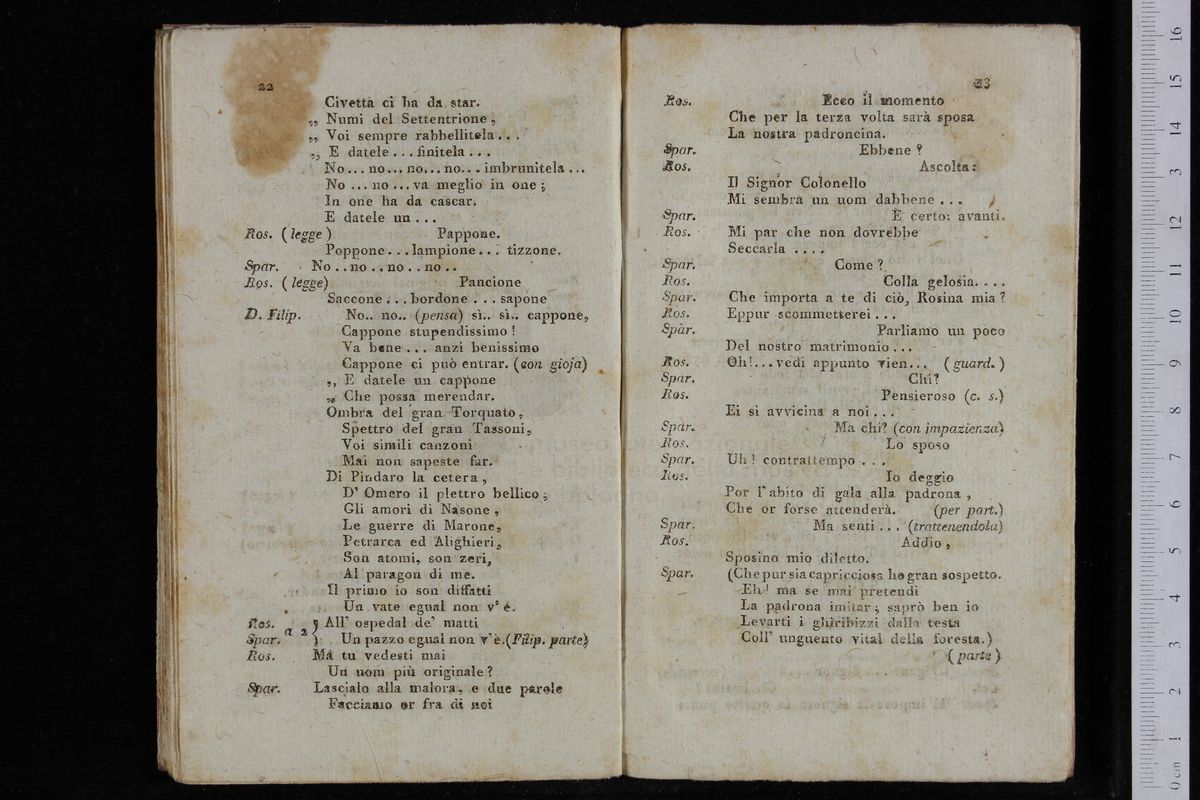 22
Civetta ci ha da star.
„ Numi del Settentrione,
„ Voi sempre rabbellitela...
„ E datele... finitela...
No... no... no... no... imbrunitela...
No... no... va meglio in one;
In one ha da cascar.
E datele un...
Ros. (legge) Pappone.
Poppone... lampione... tizzone.
Spar. No.. no.. no.. no..
Ros. (legge) Pancione
Saccone... bordone... sapone
D. Filip. No.. no.. (pensa) sì.. sì.. cappone,
Cappone stupendissimo!
Va bene... anzi benissimo
Cappone ci può entrar. (con gioja)
„ E datele un cappone
„ Che possa merendar.
Ombra del gran Torquato,
Spettro del gran Tassoni,
Voi simili canzoni
Mai non sapeste far.
Di Pindaro la cetera,
D' Omero il plettro bellico;
Gli amori di Nasone,
Le guerre di Marone,
Petrarca ed Alighieri,
Son atomi, son zeri,
Al paragon di me.
Il primo io son diffatti
Un vate egual non v' é.
Ros. a 2 } All' ospedal de' matti
Spar. } Un pazzo egual non v'è. (Filip. parte)
Ros. Ma tu vedesti mai
Un uom più originale?
Spar. Lascialo alla malora, e due parole
Facciamo or fra di noi
23
Ros. Ecco il momento
Che per la terza volta sarà sposa
La nostra padroncina.
Spar. Ebbene?
Ros. Ascolta:
Il Signor Colonello
Mi sembra un uom dabbene...
Spar. E certo: avanti.
Ros. Mi par che non dovrebbe
Seccarla....
Spar. Come?
Ros. Colla gelosia....
Spar. Che importa a te di ciò, Rosina mia?
Ros. Eppur scommetterei...
Spar. Parliamo un poco
Del nostro matrimonio...
Ros. Oh!... vedi appunto vien... (guard.)
Spar. Chi?
Ros. Pensieroso (c. s.)
Ei si avvicina a noi...
Spar. Ma chi? (con impazienza)
Ros. Lo sposo
Spar. Uh! contrattempo...
Ros. Io deggio
Por l' abito di gala alla padrona,
Che or forse attenderà. (per part.)
Spar. Ma senti... (trattenendola)
Ros. Addio,
Sposino mio diletto.
Spar. (Che pur sia capricciosa ho gran sospetto.
Eh! ma se mai pretendi
La padrona imitar; saprò ben io
Levarti i ghiribizzi dalla testa
Coll' unguento vital della foresta.)
(parte)
0 cm 1 2 3 4 5 6 7 8 9 10 11 12 13 14 15 16